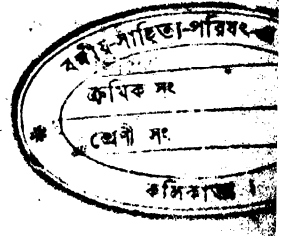 বঙ্গীয়-সাহিত্য-পরিষৎ
ক্রমিক সং
শ্রেণী সং
কলিকাতা।